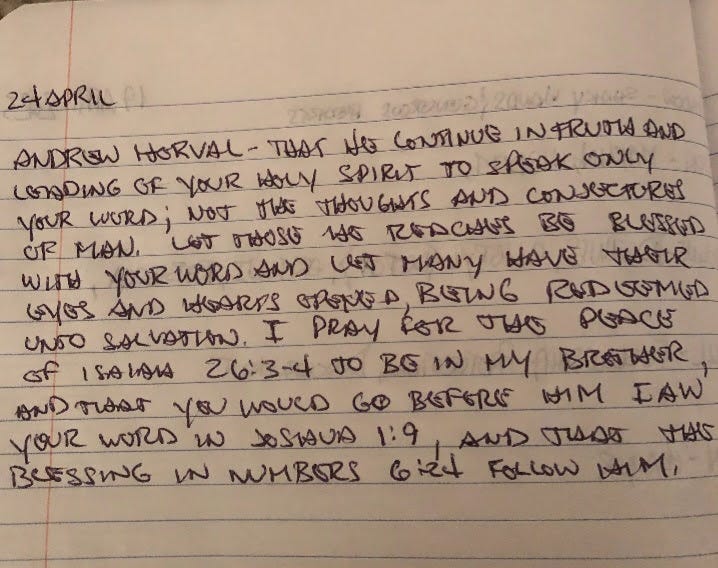 24 APRIL
ANDREW HORVAL - THAT HE CONTINUE IN TRUTH AND
LEADING OF YOUR HOLY SPIRIT TO SPEAK ONLY
YOUR WORD; NOT THE THOUGHTS AND CONJECTURES
OF MAN. LET THOSE HE REACHES BE BLESSED
WITH YOUR WORD AND LET MANY HAVE THEIR
EYES AND HEARTS OPENED, BEING REDEEMED
UNTO SALVATION. I PRAY FOR THE PEACE
OF ISAIAH 26:3-4 TO BE IN MY BROTHER,
AND THAT YOU WOULD GO BEFORE HIM
YOUR WORD IN JOSHUA 1:9, AND THAT THE
BLESSING IN NUMBERS 6:24 FOLLOW HIM.